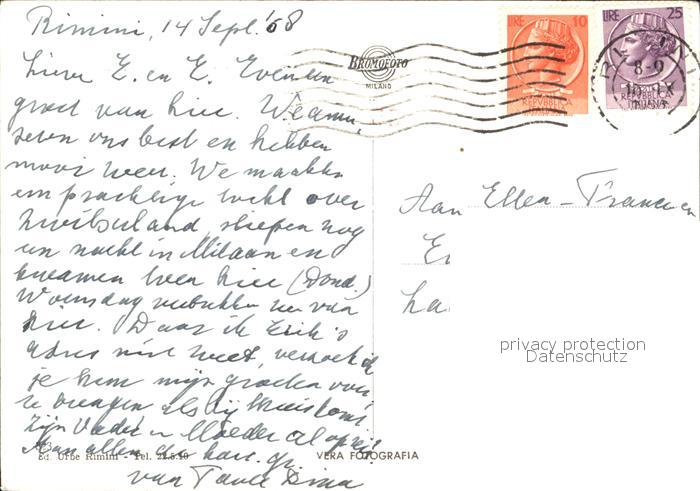 Rimini, 14 Sept. '68
Lieve E. en E. Even een
groet van hier. We amu-
seren ons best en hebben
mooi weer. We maakten
een prachtige tocht over
Zwitserland, sliepen nog
een nacht in Milaan en
kwamen toen hier (Dond.)
Woensdag vertrekken we van
hier. Daar ik Erik's
adres niet weet, verzoek ik
je hem mijn groeten over
te brengen als hij thuis komt.
Zijn Vader en Moeder al op reis?
Aan allen de hart. gr.
van Tante Dina
BROMOFOTO
MILANO
LIRE 10
REPVBBLICA
ITALIANA
LIRE 25
REPVBBLICA
ITALIANA
8-9
Aan Ellen-Francien
privacy protection
Datenschutz
Ed. Urbe Rimini - Tel.
VERA FOTOGRAFIA